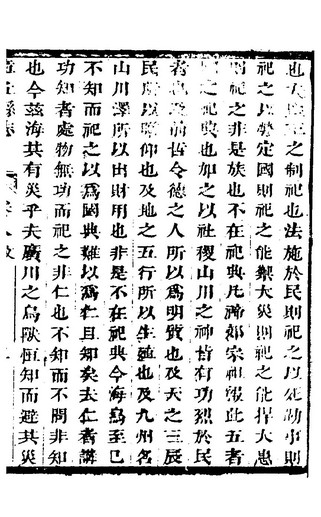 也夫聖王之制祀也法施於民則祀之以死勤事則
祀之以勞定國則祀之能禦大災則祀之能捍大患
則祀之非是族也不在祀典凡禘郊宗祖報此五者
之祀典也加之以社稷山川之神皆有功烈於民
者也及前哲令德之人所以爲明質也及天之三辰
民所以瞻仰也及地之五行所以生殖也及九州名
山川澤所以出財用也非是不在祀典今海鳥至己
不知而祀之以爲國典難以爲仁且知矣夫仁者講
功知者處物無功而祀之非仁也不知而不問非知
也今茲海其有災乎夫廣川之鳥獸恒知而避其災